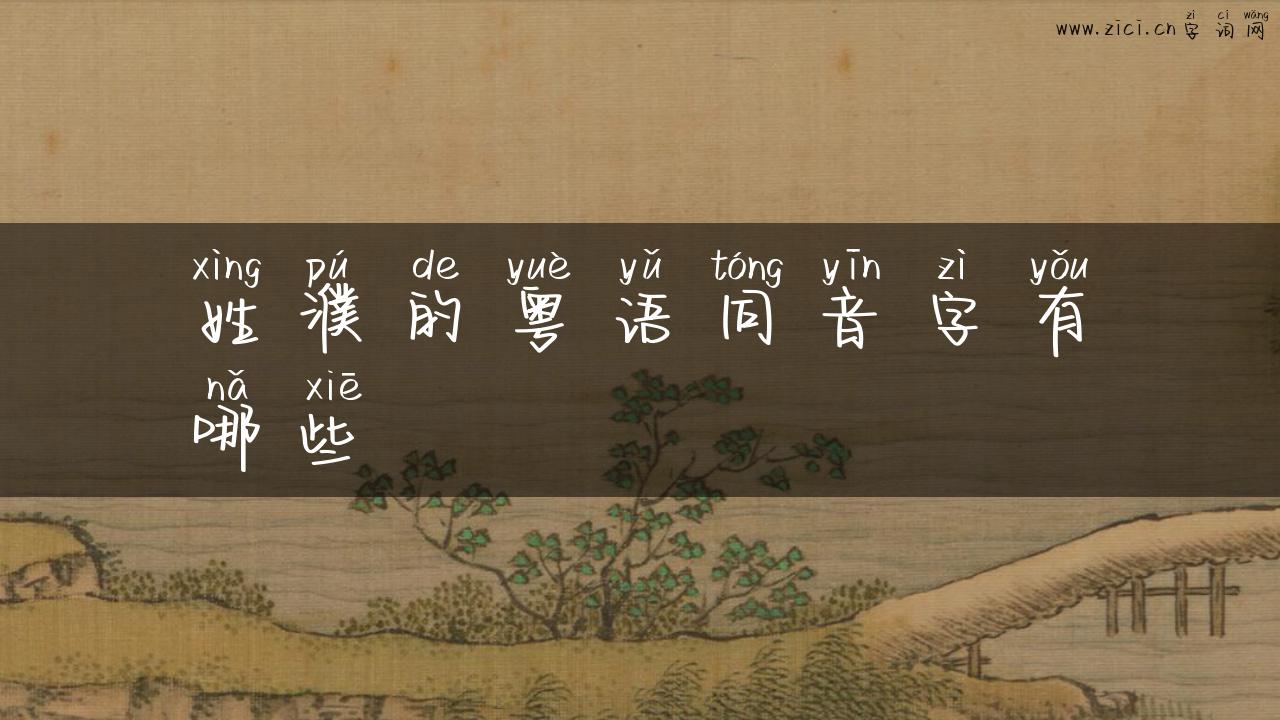 zì cí wǎng
www.zici.cn 字词网
xìng pú de yuè yǔ tóng yīn zì yǒu
姓濮的粤语同音字有
nǎ xiē
哪些